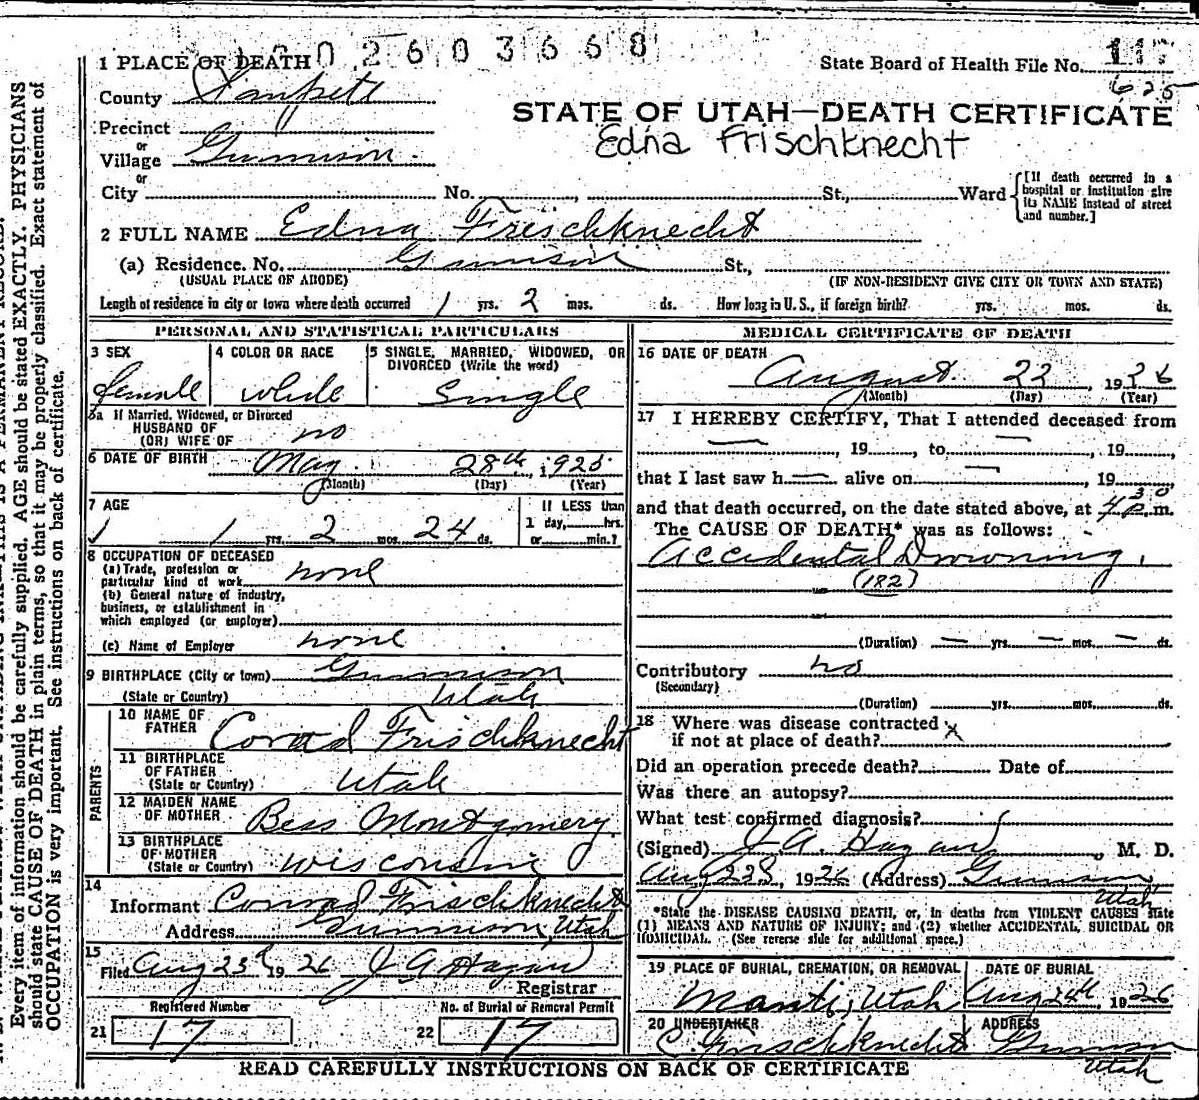 1 PLACE OF DEATH 0 2 6 0 3 6 6 8
State Board of Health File No. 117
625
County Sanpete
STATE OF UTAH—DEATH CERTIFICATE
Edna Frischknecht
Precinct
or
Village Gunnison
or
City No. , St., Ward
[If death occurred in a hospital or institution give its NAME instead of street and number.]
2 FULL NAME Edna Frischknecht
(a) Residence. No. Gunnison St.,
(USUAL PLACE OF ABODE) (IF NON-RESIDENT GIVE CITY OR TOWN AND STATE)
Length of residence in city or town where death occurred 1 yrs. 2 mos. ds. How long in U. S., if foreign birth? yrs. mos. ds.
PERSONAL AND STATISTICAL PARTICULARS
3 SEX
female
4 COLOR OR RACE
white
5 SINGLE, MARRIED, WIDOWED, OR DIVORCED (Write the word)
Single
5a If Married, Widowed, or Divorced
HUSBAND OF
(OR) WIFE OF no
6 DATE OF BIRTH May 28th, 1925
(Month) (Day) (Year)
7 AGE
1 yrs. 2 mos. 24 ds.
If LESS than
1 day, hrs.
or min.?
8 OCCUPATION OF DECEASED
(a) Trade, profession or
particular kind of work none
(b) General nature of industry,
business, or establishment in
which employed (or employer)
(c) Name of Employer none
9 BIRTHPLACE (City or town) Gunnison
(State or Country) Utah
PARENTS
10 NAME OF
FATHER Conrad Frischknecht
11 BIRTHPLACE
OF FATHER
(State or Country) Utah
12 MAIDEN NAME
OF MOTHER Bess Montgomery
13 BIRTHPLACE
OF MOTHER
(State or Country) Wisconsin
14
Informant Conrad Frischknecht
Address Gunnison, Utah
15
Filed Aug 23d 1926 J A Hagan
Registrar
Registered Number
21 17
No. of Burial or Removal Permit
22 17
MEDICAL CERTIFICATE OF DEATH
16 DATE OF DEATH
August 22, 1926
(Month) (Day) (Year)
17 I HEREBY CERTIFY, That I attended deceased from
, 19 , to , 19 ,
that I last saw h alive on , 19
and that death occurred, on the date stated above, at 4 30 P. m.
The CAUSE OF DEATH* was as follows:
Accidental Drowning.
(182)
(Duration) yrs. mos. ds.
Contributory no
(Secondary)
(Duration) yrs. mos. ds.
18 Where was disease contracted
if not at place of death? X
Did an operation precede death? Date of
Was there an autopsy?
What test confirmed diagnosis?
(Signed) J A. Hagan, M. D.
Aug 23d, 1926 (Address) Gunnison
Utah
*State the DISEASE CAUSING DEATH, or, in deaths from VIOLENT CAUSES state
(1) MEANS AND NATURE OF INJURY; and (2) whether ACCIDENTAL, SUICIDAL OR
HOMICIDAL. (See reverse side for additional space.)
19 PLACE OF BURIAL, CREMATION, OR REMOVAL
Manti, Utah
DATE OF BURIAL
Aug 24th, 1926
20 UNDERTAKER
C. Frischknecht
ADDRESS
Gunnison
Utah
READ CAREFULLY INSTRUCTIONS ON BACK OF CERTIFICATE
Every item of information should be carefully supplied. AGE should be stated EXACTLY. PHYSICIANS
should state CAUSE OF DEATH in plain terms, so that it may be properly classified. Exact statement of
OCCUPATION is very important. See instructions on back of certificate.